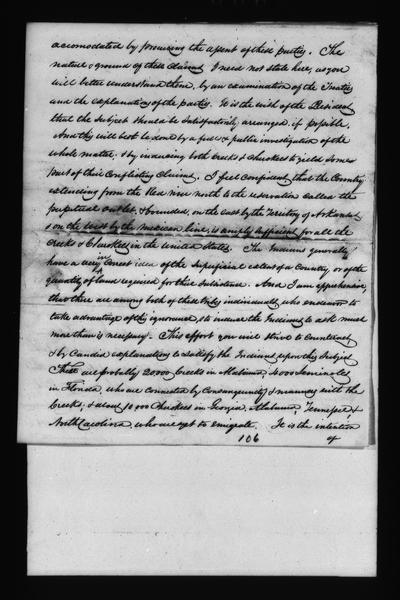 accomodated by procuring the assent of these parties. The
nature & ground of these claims I need not state here, as you
will better understand them, by an examination of the Treaties
and the explanations of the parties. It is the wish of the President
that the subject should be satisfactorily arranged if possible.
And this will best be done by a full & public investigation of the
whole matter, & by inducing both Creeks & Cherokees to yield some
part of their conflicting claims. I feel confident that the Country
extending from the Red river north to the reservation called the
perpetual outlet, & bounded, on the east by the Territory of Arkansas
& on the west by the mexican line, is amply sufficient for all the
Creeks & Cherokees in the United States. The Indians generally
have a very incorrect idea of the superficial extent of a Country, or of the
quantity of land required for their subsistence. And I am apprehensive,
that there are among both of these tribes individuals, who endeavor to
take advantage of this ignorance, & to induce the Indians to ask much
more than is necessary. This effort you will strive to counteract
& by candid explanations to satisfy the Indians upon this subject
There are probably 20000 Creeks in Alabama, 4000 Seminoles
in Florida, who are connected by consanguinity & manners with the
Creeks, & about 10,000 Cherokees in Georgia, Alabama, Tennessee &
North Carolina, who are yet to emigrate. It is the intention
106
of